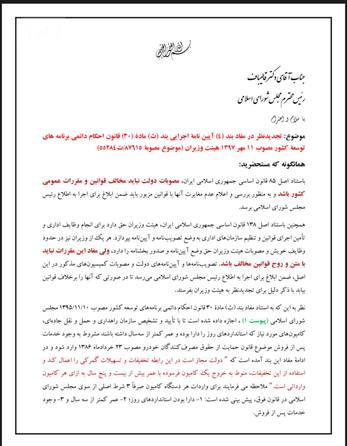 جناب آقای دکتر قالیباف
رئیس محترم مجلس شورای اسلامی
با سلام و احترام
موضوع: تجدیدنظر در مفاد بند (٤) آیین نامه اجرایی بند (ت) ماده (۳۰) قانون احکام دائمی برنامه های
توسعه کشور مصوب ۱۱ مهر ۱۳۹۷ هیئت وزیران (موضوع مصوبه
همانگونه که مستحضرید:
باستناد اصل ۸۵ قانون اساسی جمهوری اسلامی ایران، مصوبات دولت نباید مخالف قوانین و مقررات عمومی
کشور باشد و به منظور بررسی و اعلام عدم مغایرت آنها با قوانین مزبور باید ضمن ابلاغ برای اجرا به اطلاع رئیس
مجلس شورای اسلامی برسد.
همچنین باستناد اصل ۱۳۸ قانون اساسی جمهوری اسلامی ایران، هیئت وزیران حق دارد برای انجام وظایف اداری و
تأمین اجرای قوانین و تنظیم سازمان‌های اداری به وضع تصویب‌نامه و آیین‌نامه بپردازد. هر یک از وزیران نیز در حدود
وظایف خویش و مصوبات هیئت وزیران حق وضع آیین‌نامه و صدور بخشنامه را دارد، ولی مفاد این مقررات نباید
با متن و روح قوانین مخالف باشد. تصویب‌نامه‌ها و آیین‌نامه‌های دولت و مصوبات کمیسیون‌های مذکور در این
اصل، ضمن ابلاغ برای اجرا به اطلاع رئیس مجلس شورای اسلامی می‌رسد تا در صورتی که آنها را برخلاف قوانین
بیابد با ذکر دلیل برای تجدیدنظر به هیئت وزیران بفرستد.
نظر به این که به استناد بند (ت) ماده ۳۰ قانون احکام دائمی برنامه‌های توسعه کشور مصوب ۱۳۹۵/۱۱/۱۰ مجلس
شورای اسلامی (پیوست ۱) ، اجازه داده شده است تا با تأیید و تشخیص سازمان راهداری و حمل و نقل جاده‌ای،
کامیون‌های مورد نیاز که استانداردهای روز را دارا بوده و عمر کمتر از سه‌سال داشته باشند مشروط به وجود خدمات
پس از فروش موضوع قانون حمایت از حقوق مصرف‌کنندگان خودرو مصوب ۲۳ خردادماه ۱۳۸۶ وارد شود و در
ادامه مفاد این بند آمده است که " دولت مجاز است در این رابطه تخفیفات و تسهیلات گمرکی را اعمال کند و
استفاده از این تخفیفات، منوط به خروج یک کامیون فرسوده با عمر بیش از بیست و پنج سال به ازای هر کامیون
وارداتی است." ملاحظه می فرمایند برای واردات هر دستگاه کامیون صرفاً ۳ شرط اصلی از سوی مجلس شورای
اسلامی در قانون فوق، پیش بینی شده است: ۱- دارا بودن استانداردهای روز؛ ۲- عمر کمتر از سه سال و ۳- وجود
خدمات پس از فروش.